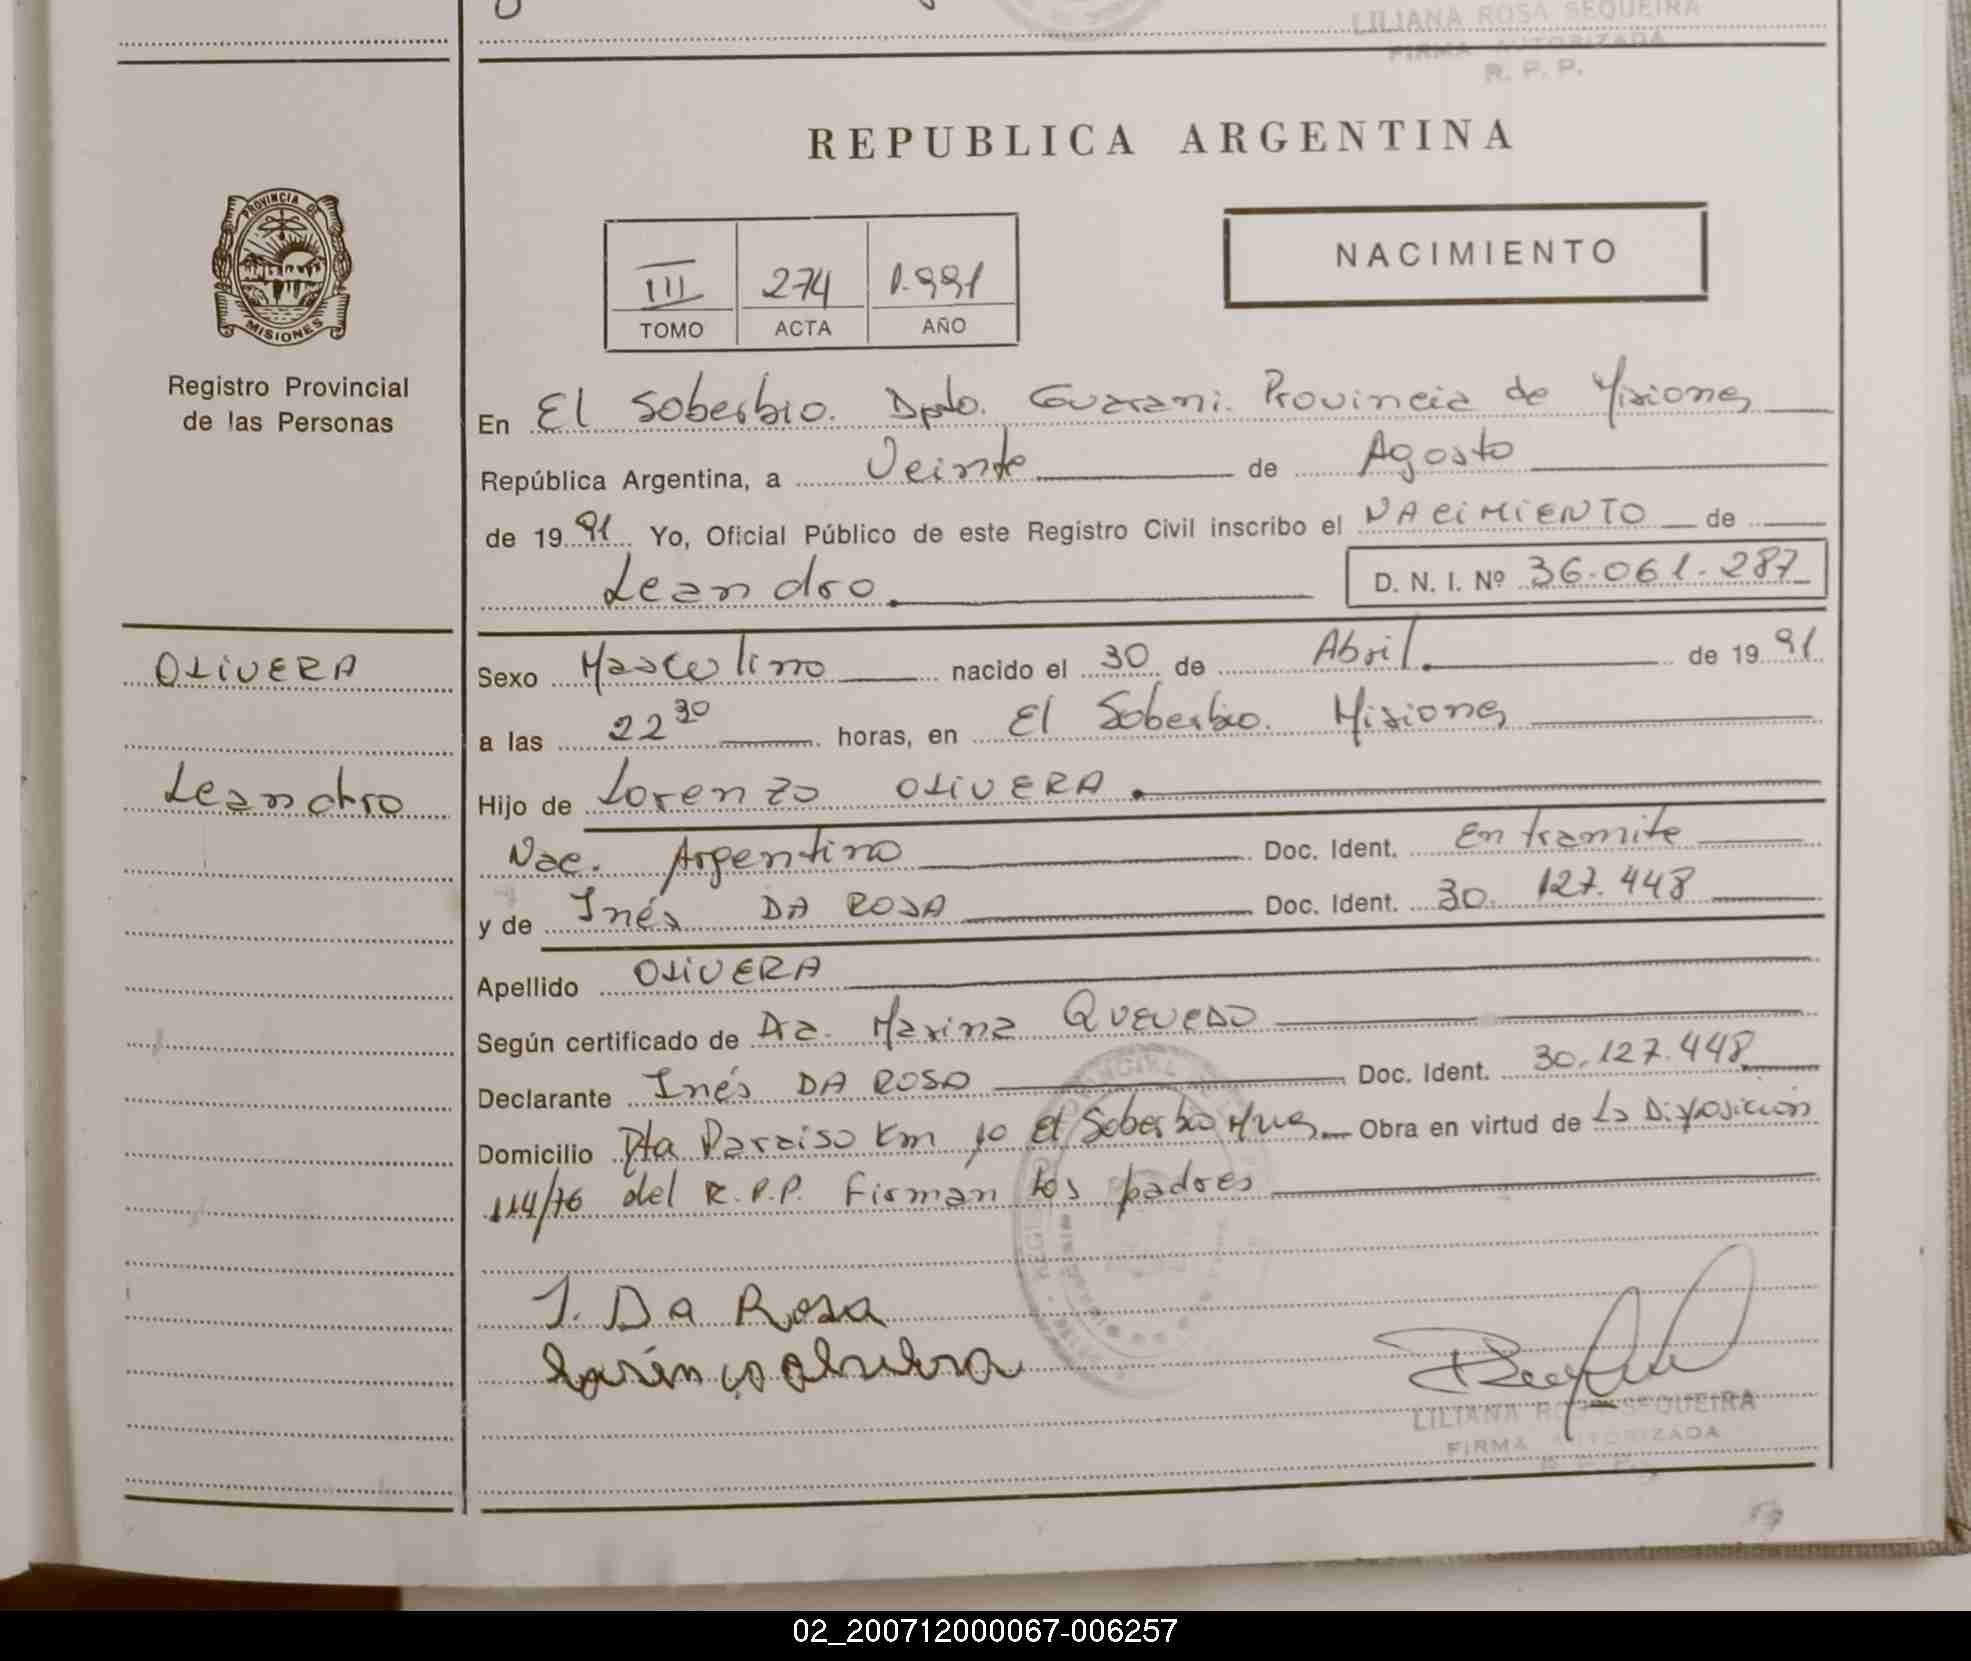 LILIANA ROSA SEQUEIRA
FIRMA AUTORIZADA
R. P. P.
REPUBLICA ARGENTINA
NACIMIENTO
III 274 1.991
TOMO ACTA AÑO
PROVINCIA DE
MISIONES
Registro Provincial
de las Personas
En El Soberbio. Dpto. Guarani. Provincia de Misiones
República Argentina, a Veinte de Agosto
de 1991 Yo, Oficial Público de este Registro Civil inscribo el NACIMIENTO de
Leandro. D. N. I. Nº 36.061.287
OLIVERA
Leandro
Sexo Masculino nacido el 30 de Abril. de 1991
a las 22 30 horas, en El Soberbio. Misiones
Hijo de Lorenzo OLIVERA.
Nac. Argentino Doc. Ident. En tramite
y de Inés DA ROSA Doc. Ident. 30. 127.448
Apellido OLIVERA
Según certificado de Dra. Marina QUEVEDO
Declarante Inés DA ROSA Doc. Ident. 30.127.448
Domicilio Pta Paraiso Km 10 El Soberbio Mnes Obra en virtud de La Disposicion
114/76 del R.P.P. Firman los padres
I. Da Rosa
LILIANA ROSA SEQUEIRA
FIRMA AUTORIZADA
02_200712000067-006257